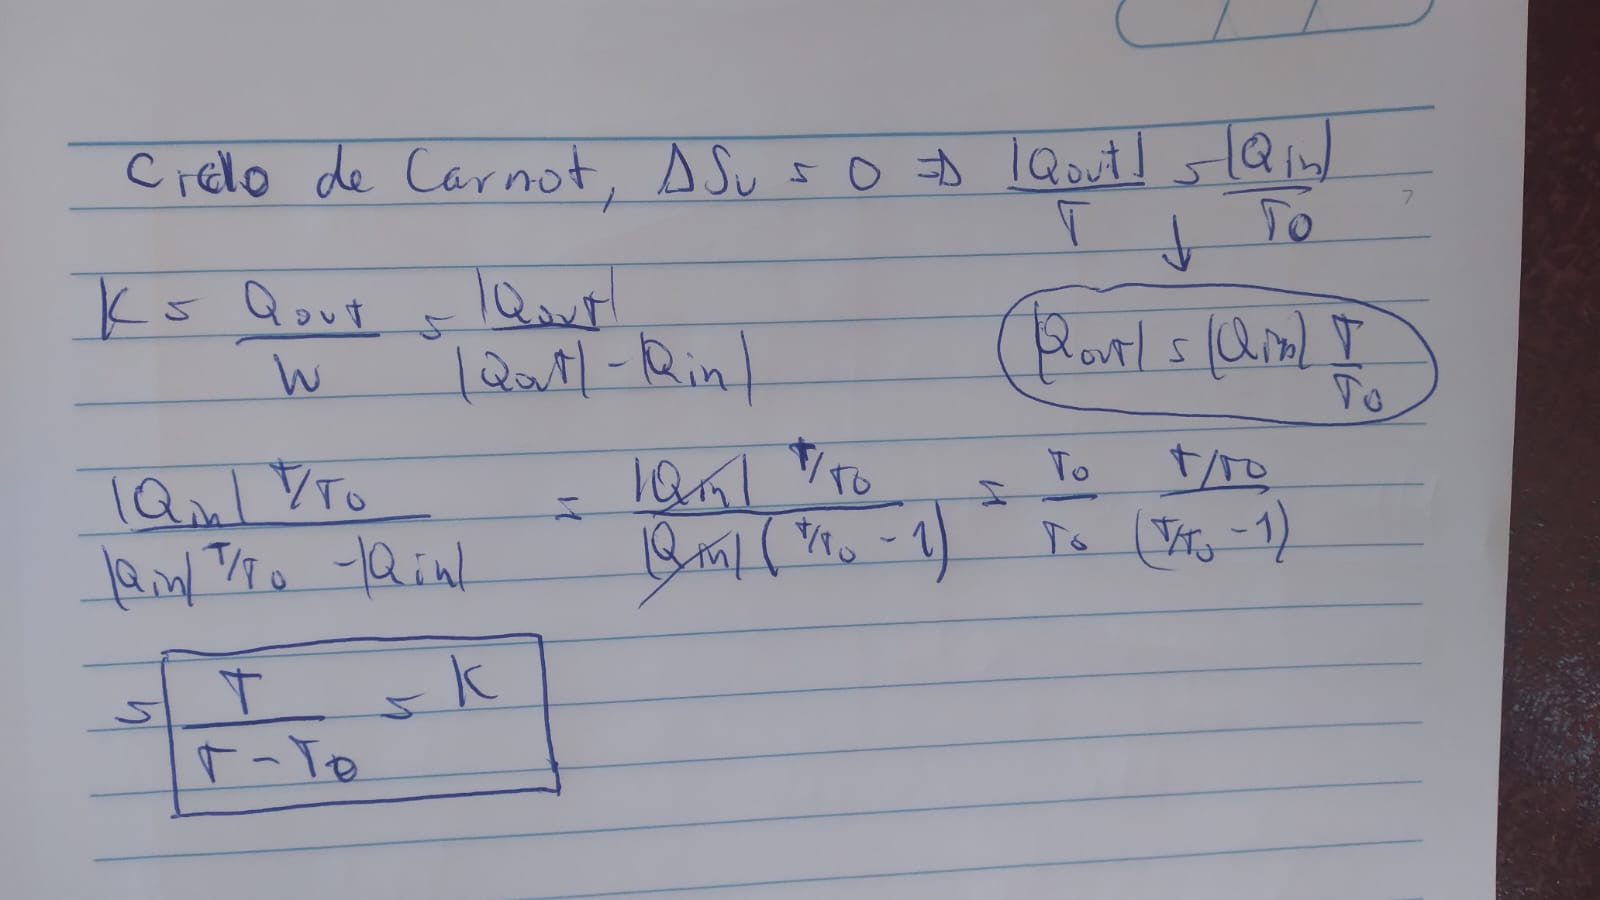 Ciclo de Carnot, ΔSu = 0 ⇒ |Qout|/T = |Qin|/T0
↓
K = Qout/W = |Qout|/(|Qout| - |Qin|)
|Qout| = |Qin| T/T0
|Qin| T/T0 / (|Qin| T/T0 - |Qin|) = |Qin| T/T0 / (|Qin| (T/T0 - 1)) = T0/T0 T/T0 / (T/T0 - 1)
= T/(T - T0) = K